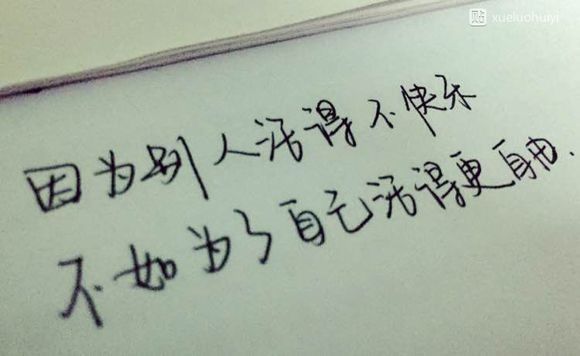 贴 xueluohuiyi
因为别人活得不快乐
不如为了自己活得更自由.